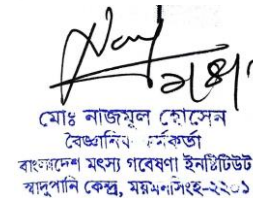 মোঃ নাজমুল হোসেন
বৈজ্ঞানিক কর্মকর্তা
বাংলাদেশ মৎস্য গবেষণা ইনস্টিটিউট
স্বাদুপানি কেন্দ্র, ময়মনসিংহ-২২০১